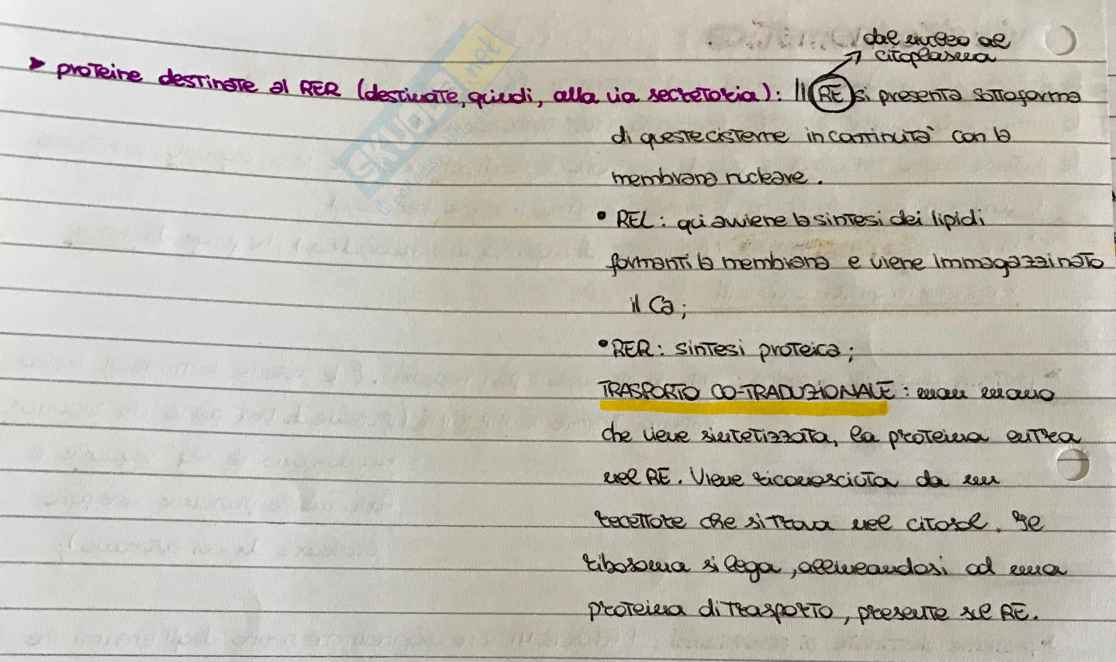 dal nucleo al
citoplasma
➤ proteine destinate al RER (destinate, quindi, alla via secretoria): Il RE si presenta sottoforma
di queste cisterne in continuità con la
membrana nucleare.
• REL: qui avviene la sintesi dei lipidi
formanti la membrana e viene immagazzinato
il Ca;
• RER: sintesi proteica;
TRASPORTO CO-TRADUZIONALE: man mano
che viene sintetizzata, la proteina entra
nel RE. Viene riconosciuta da un
recettore che si trova nel citosol. Il
ribosoma si lega, allineandosi ad una
proteina di trasporto, presente sul RE.
SKUOLA.net